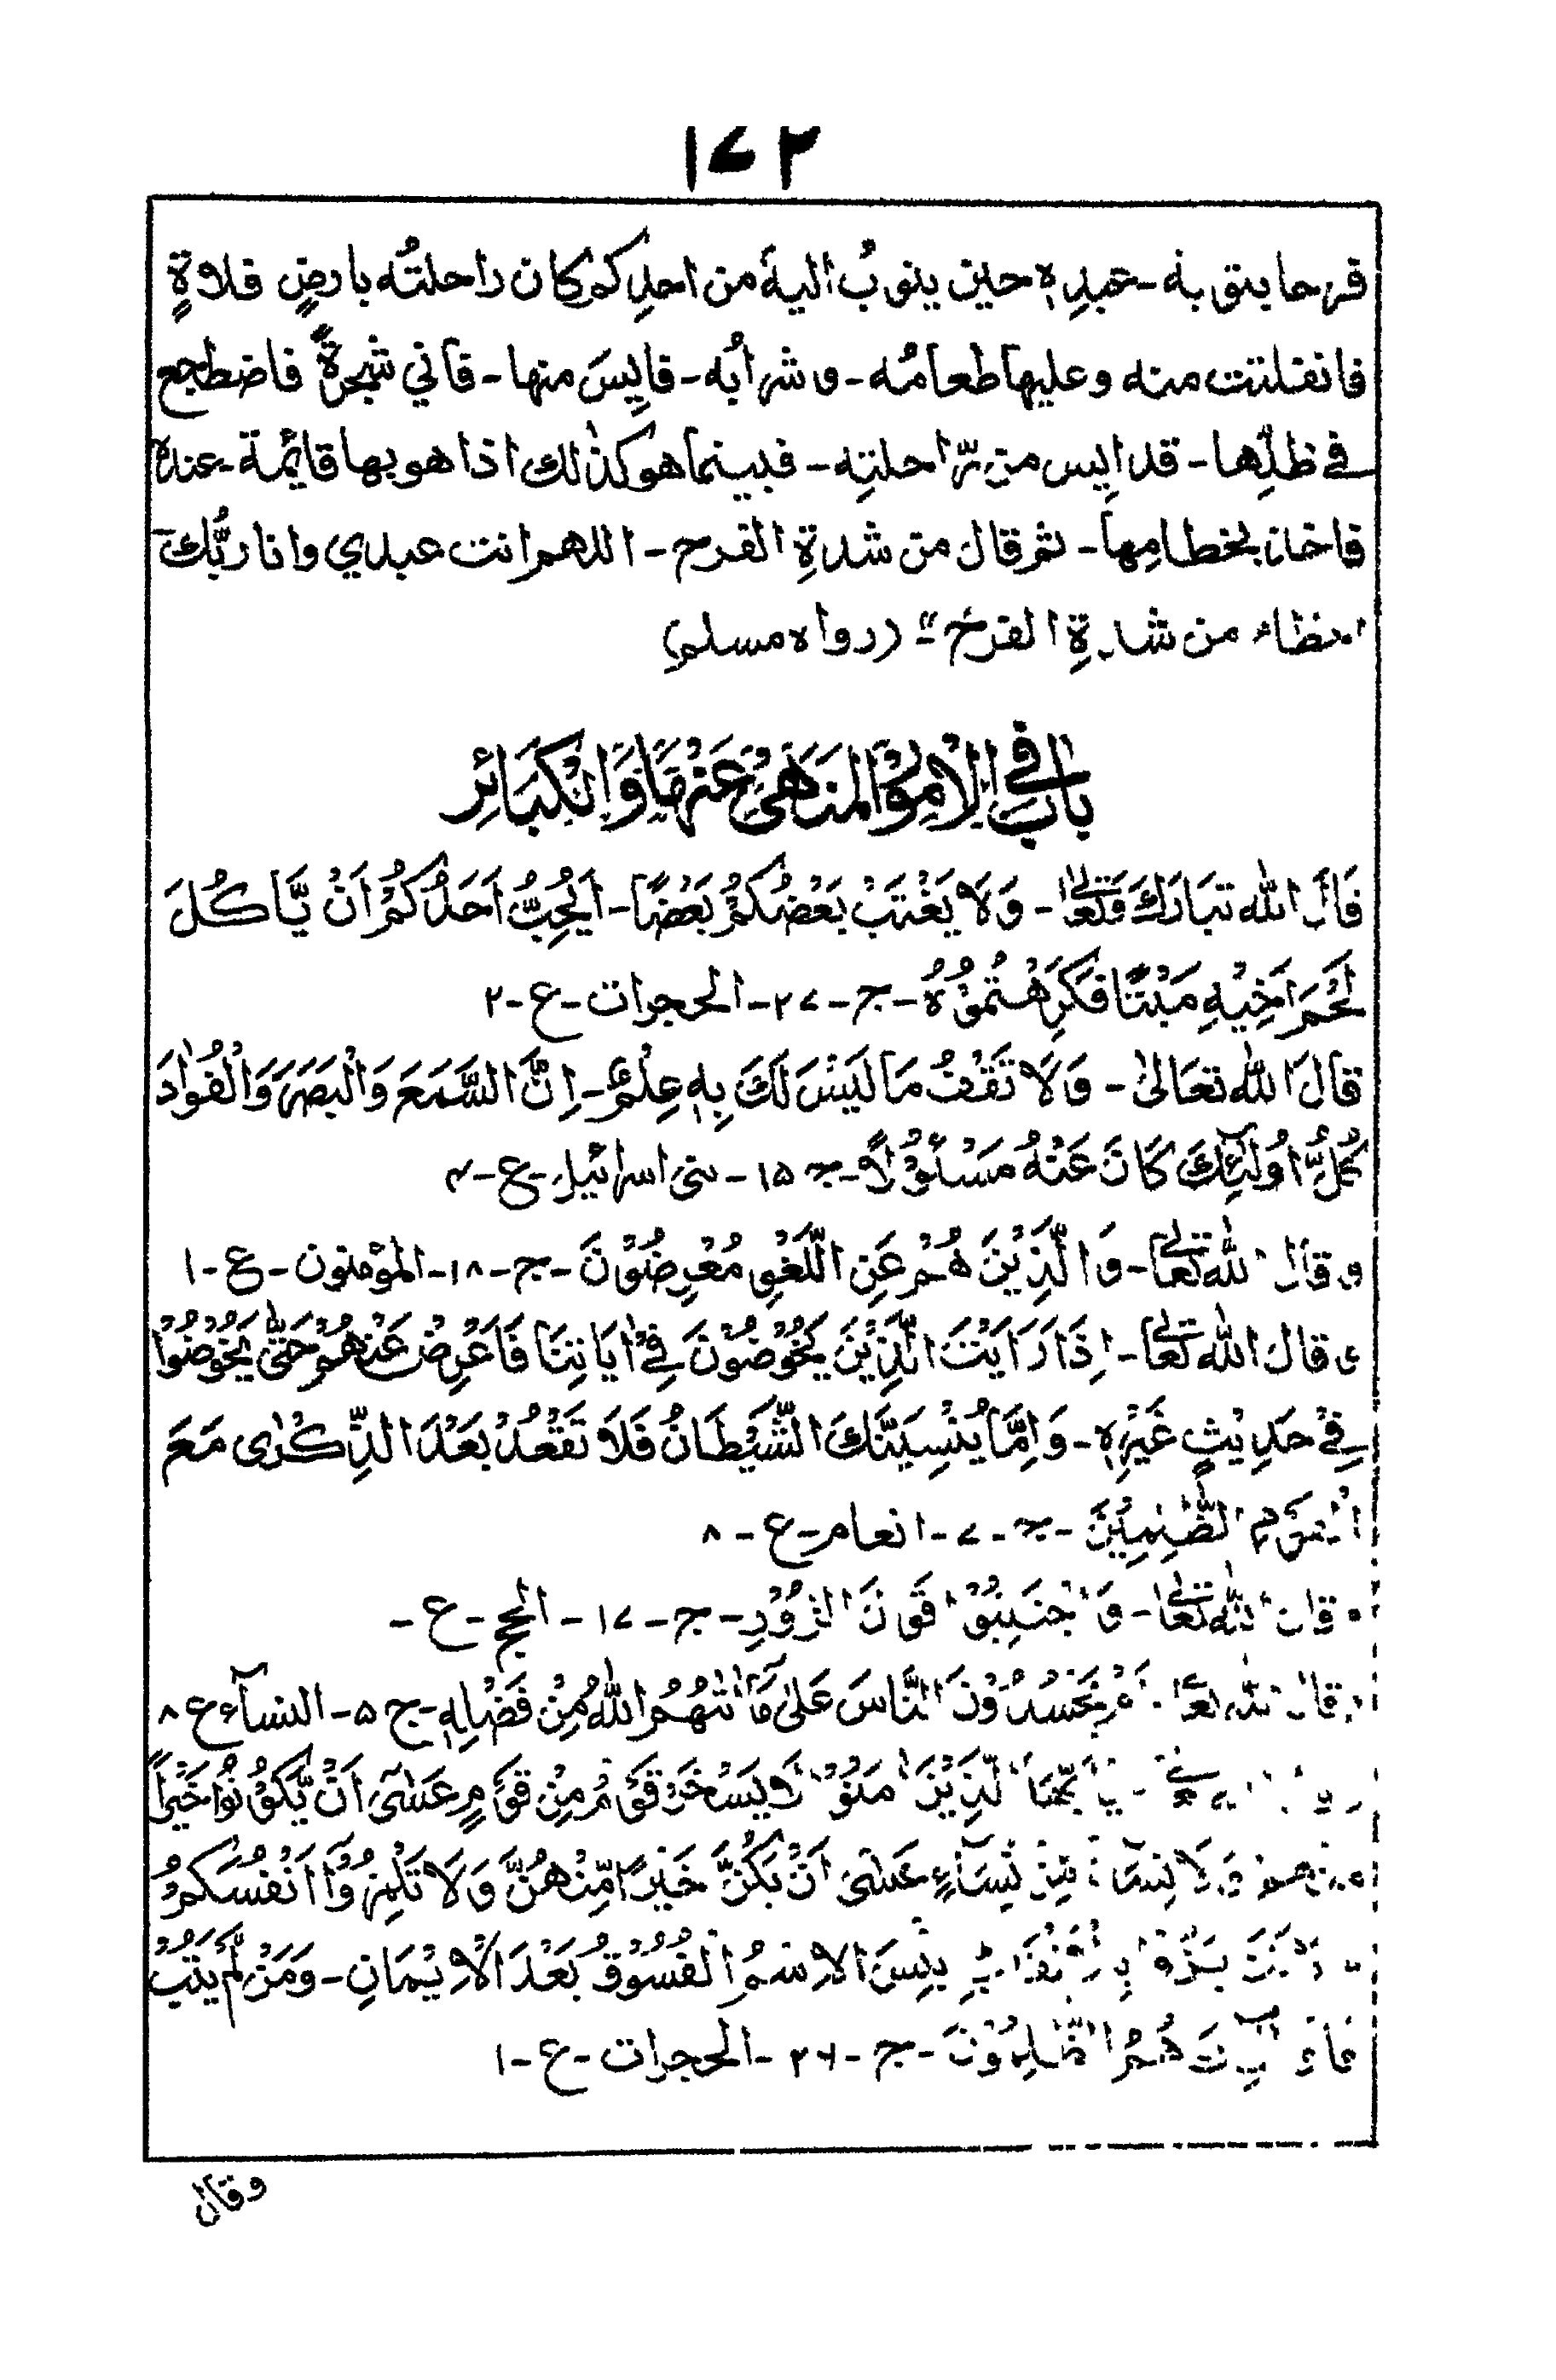 ۱۷۲
فرحا بتوبة - عبدِهٖ حين يتوبُ اليهِ من احدِكم كان راحلتُه بارضٍ فلاةٍ
فانفلتت منه وعليها طعامُه - و شرابُه - فايِسَ منها - فاتي شجرةً فاضطجع
في ظلِّها - قد ايِس من رّاحلتِه - فبينما هو كذٰلك اذا هو بها قائِمة - عنده
فاخذ بخطامِها - ثم قال من شدةِ الفرح - اللهم انت عبدي وانا ربُّك
اخطاء من شدةِ الفرح" (رواه مسلم)
بَابٌ فِي الْاُمُوْرِ الْمَنَهِيِّ عَنْهَا وَالْكَبَائِر
قَالَ الله تَبَارَكَ وَتَعَالىٰ - وَلَا يَغْتَبْ بَعْضُكُمْ بَعْضًا - اَيُحِبُّ اَحَدُكُمْ اَنْ يَّاكُلَ
لَحْمَ اَخِيْهِ مَيْتًا فَكَرِهْتُمُوْهُ - ج - ۲۷ - الحجرات - ع - ۲
قَالَ اللهُ تعَالىٰ - وَلَا تَقْفُ مَا لَيْسَ لَكَ بِهٖ عِلْمٌ - اِنَّ السَّمْعَ وَالْبَصَرَ وَالْفُوَادَ
كُلُّ اُولٰٓئِكَ كَانَ عَنْهُ مَسْئُوْلًا - ج ۱۵ - بنى اسرائيل - ع - ۴
و قَالَ اللهُ تَعَالىٰ - وَالَّذِيْنَ هُمْ عَنِ اللَّغْوِ مُعْرِضُوْنَ - ج - ۱۸ - المؤمنون - ع - ۱
و قال الله تَعَالىٰ - اِذَا رَاَيْتَ الَّذِيْنَ يَخُوْضُوْنَ فِيْ اٰيَاتِنَا فَاَعْرِضْ عَنْهُمْ حَتّٰى يَخُوْضُوْا
فِيْ حَدِيْثٍ غَيْرِهٖ - وَاِمَّا يُنْسِيَنَّكَ الشَّيْطَانُ فَلَا تَقْعُدْ بَعْدَ الذِّكْرٰى مَعَ
الْقَوْمِ الظّٰلِمِيْنَ - ج - ۷ - انعام - ع - ۸
و قال الله تَعَالىٰ - وَاجْتَنِبُوْا قَوْلَ الزُّوْرِ - ج - ۱۷ - الحج - ع -
و قال الله تعالىٰ - اَمْ يَحْسُدُوْنَ النَّاسَ عَلىٰ مَا اٰتٰهُمُ اللهُ مِنْ فَضْلِهٖ - ج ۵ - النسآء ع ۸
يَا اَيُّهَا الَّذِيْنَ اٰمَنُوْا لَا يَسْخَرْ قَوْمٌ مِنْ قَوْمٍ عَسٰىٓ اَنْ يَّكُوْنُوْا خَيْرًا
مِنْهُمْ وَلَا نِسَآءٌ مِنْ نِسَآءٍ عَسٰىٓ اَنْ يَكُنَّ خَيْرًا مِّنْهُنَّ وَلَا تَلْمِزُوْا اَنْفُسَكُمْ
وَلَا تَنَابَزُوْا بِالْاَلْقَابِ بِئْسَ الْاِسْمُ الْفُسُوْقُ بَعْدَ الْاِيْمَانِ - وَمَنْ لَّمْ يَتُبْ
فَاُولٰٓئِكَ هُمُ الظّٰلِمُوْنَ - ج - ۲۶ - الحجرات - ع - ۱
وقال